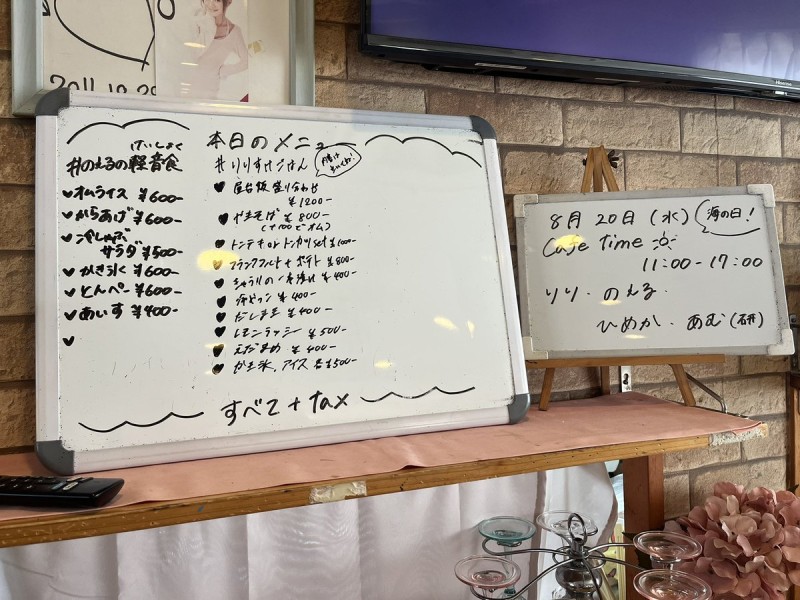 2011.10.29
本日のメニュー
けいしょく
#のえるの軽音食
♥ オムライス ¥600-
♥ からあげ ¥600-
♥ 冷しゃぶ
サラダ ¥500-
♥ かき氷 ¥600-
♥ とんぺー ¥600-
♥ あいす ¥400-
♥
#りりすけごはん
♥ 屋台板盛り合わせ
¥1200-
♥ やきそば ¥800-
(+100でオム)
♥ トンテキorトンカツset
♥ フランクフルト+ポテト ¥800-
♥ きゅうりの一本漬け ¥400-
¥400-
♥ だし ¥400-
♥ レモンラッシー ¥500-
♥ えだまめ ¥400-
♥ かき氷、アイス 各¥500-
すべて+tax
8月20日(水)
海の日!
Cafe Time
11:00-17:00
りり. のえる.
ひめか. あむ(石井)
Hisense